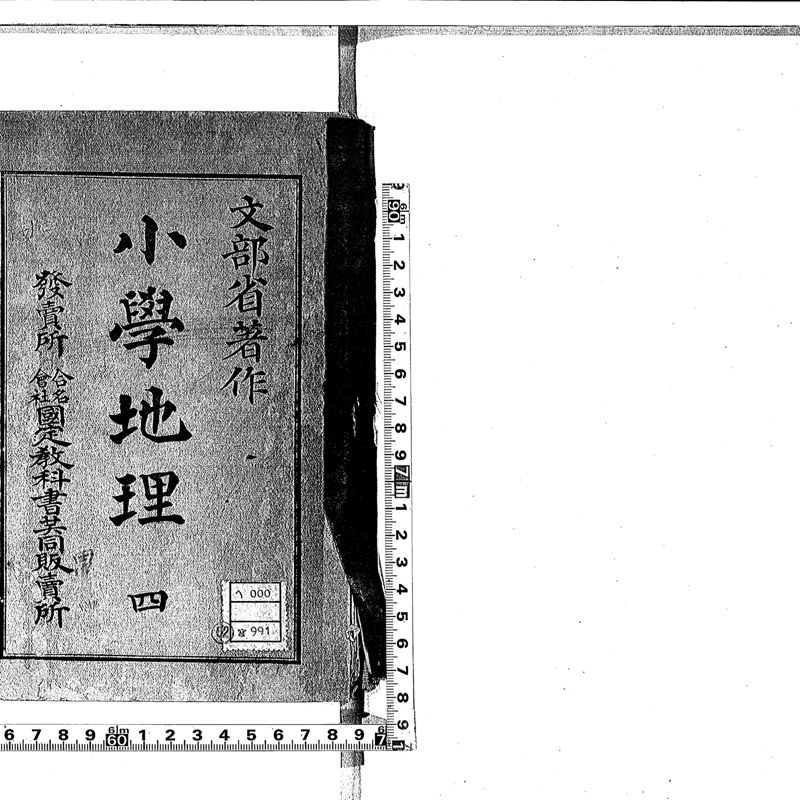 文部省著作
小學地理 四
發賣所 合名會社 國定教科書共同販賣所
000
991
9 6m 90 1 2 3 4 5 6 7 8 9 7m 1 2 3 4 5 6 7 8 9 1
6 7 8 9 6m 60 1 2 3 4 5 6 7 8 9 6 7